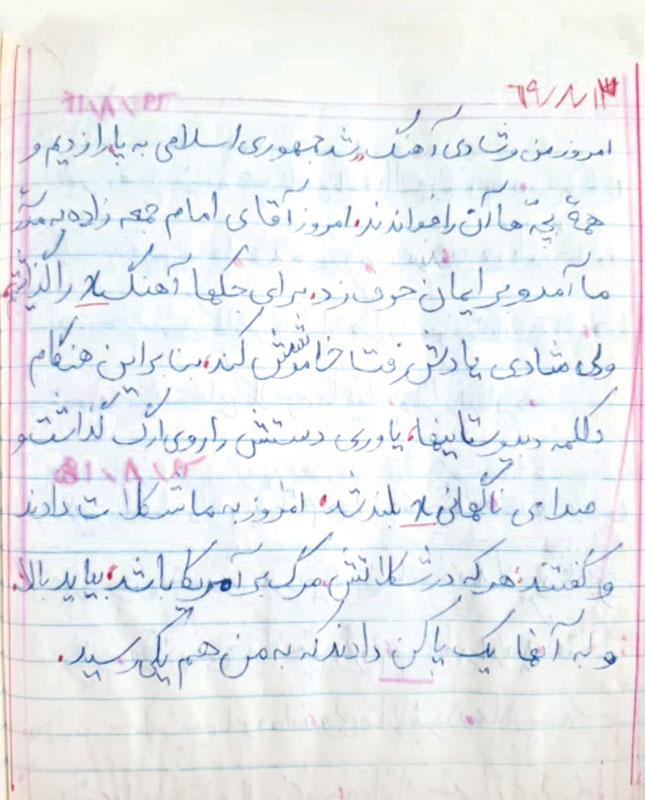 ۶۹/۸/۱۳
امروز من و شادی آهنگ شد جمهوری اسلامی به پا را زدیم و
همهٔ بچّه ها آن را خواندند. امروز آقای امام جمعه زاده به
ما آمد و بر ایمان حرف زد. برای جکها آهنگ x را گذاشتم
ولی شادی یادش رفت خاموشش کند. بنا براین هنگام
دکلمه دبیرستانیها، یاوری دستش را روی ارگ گذاشت و
صدای ناگهانی x بلند شد. امروز به ما شکلات دادند
و گفتند: هر که در شکلاتش مرگ بر آمریکا باشد، بیاید بالا.
و به آنها یک پاکن دادند که به من هم یکی رسید.